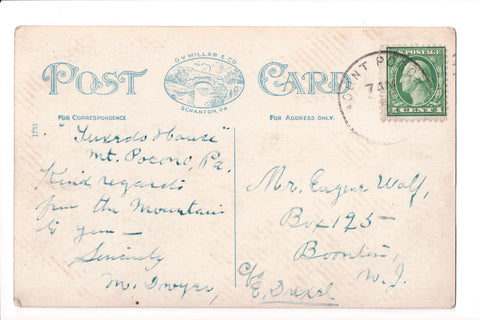 POST CARD
G.V. MILLAR & CO.
SCRANTON, PA.
FOR CORRESPONDENCE
FOR ADDRESS ONLY.
1773
"Tuxedo House"
Mt. Pocono, Pa.
Kind regards
from the Mountain
to you —
Sincerely
M. Dwyer,
Mr. Eugene Wolf,
Box 125 —
Boonton,
N. J.
c/o
E. Drexel
MOUNT POCO
7 AM
U.S. POSTAGE
1 CENT 1